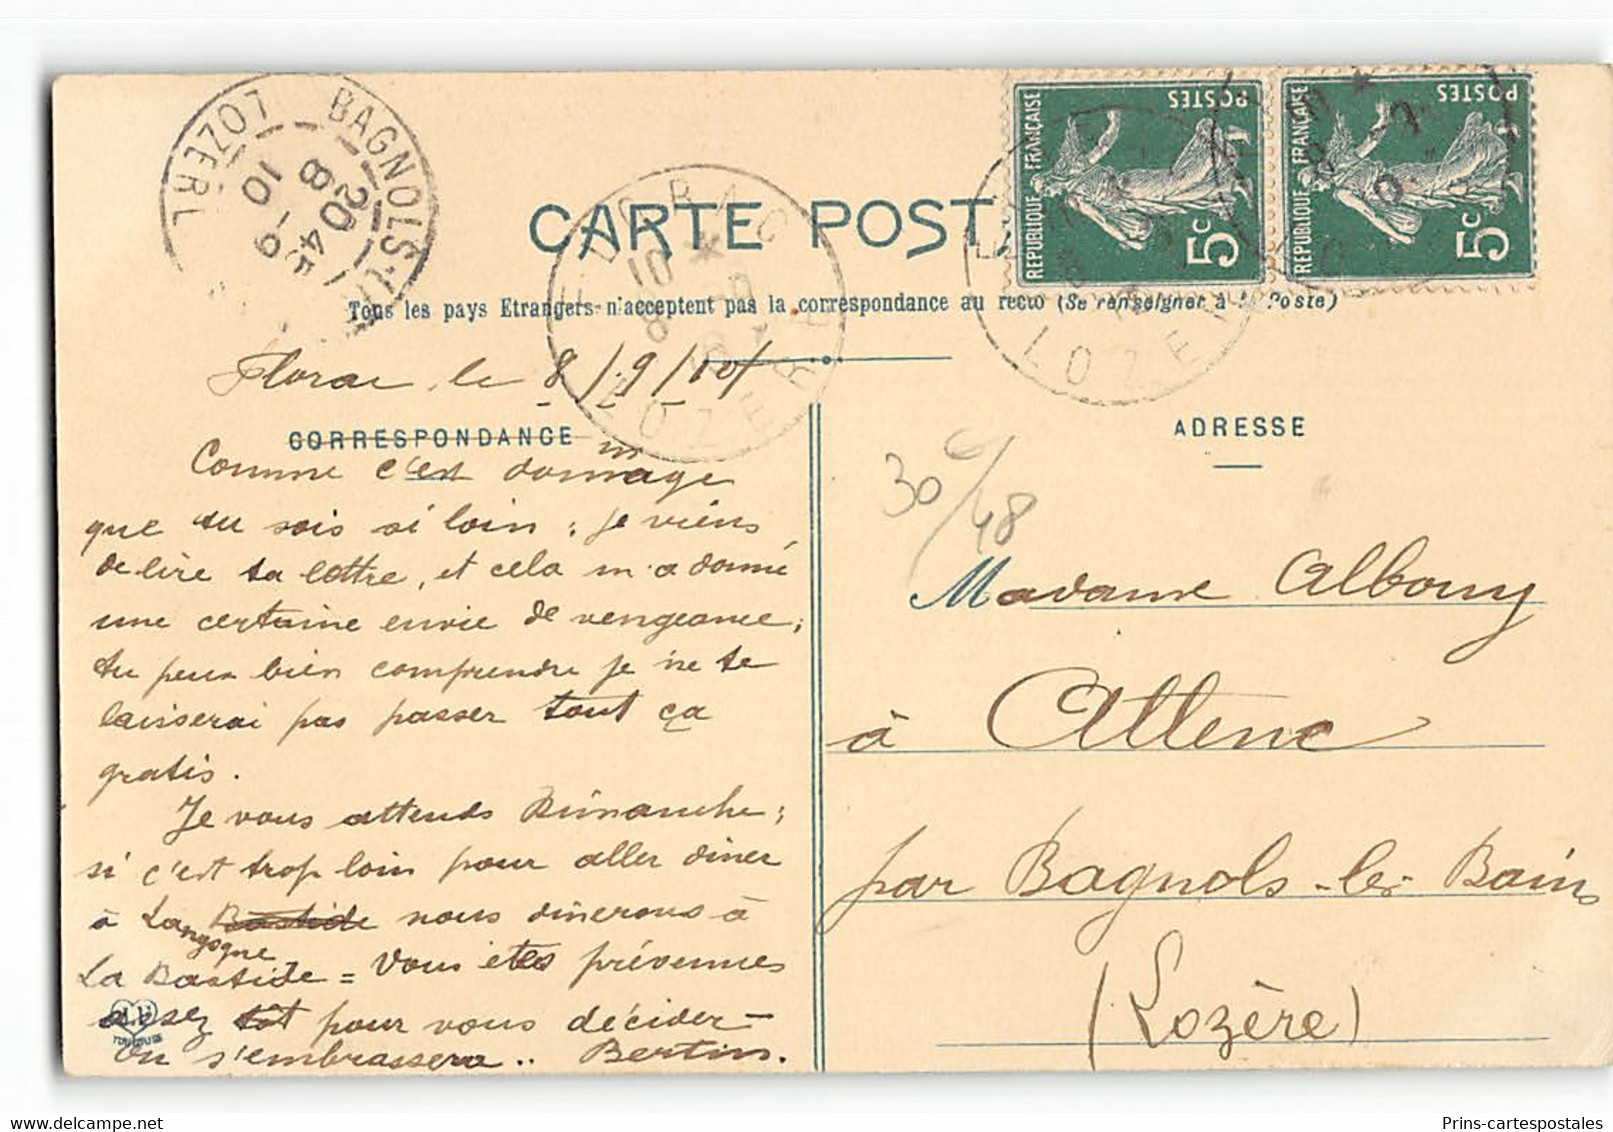 BAGNOLS-L
LOZÈRE
20 45
8
10 -9
FLORAC
LOZÈRE
REPUBLIQUE FRANÇAISE
POSTES
5c
REPUBLIQUE FRANÇAISE
POSTES
5c
LOZERE
CARTE POST
Tous les pays Etrangers n'acceptent pas la correspondance au recto (Se renseigner à la Poste)
Florac, le 8/9/10
CORRESPONDANCE
ADRESSE
30€/48
Comme c'est dommage
que tu sois si loin ; je viens
de lire ta lettre, et cela m'a donné
une certaine envie de vengeance ;
tu peux bien comprendre je ne te
laisserai pas passer tout ça
gratis.
Je vous attends Dimanche ;
si c'est trop loin pour aller diner
à Langogne Bastide nous dinerons à
La Bastide = Vous êtes prévenues
assez tôt pour vous décider —
On s'embrassera .. Bertin.
Madame Albouy
à Allenc
par Bagnols-les-Bains
(Lozère)
TOULOUSE
Prins-cartespostales